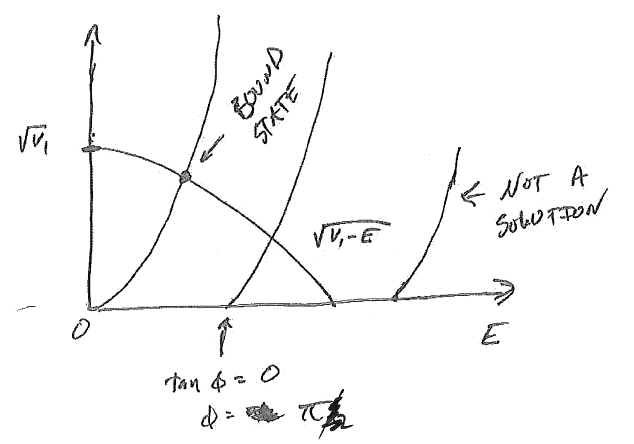 BOUND
STATE
√V₁
NOT A
SOLUTION
√V₁-E
0
E
tan ϕ = 0
ϕ = π